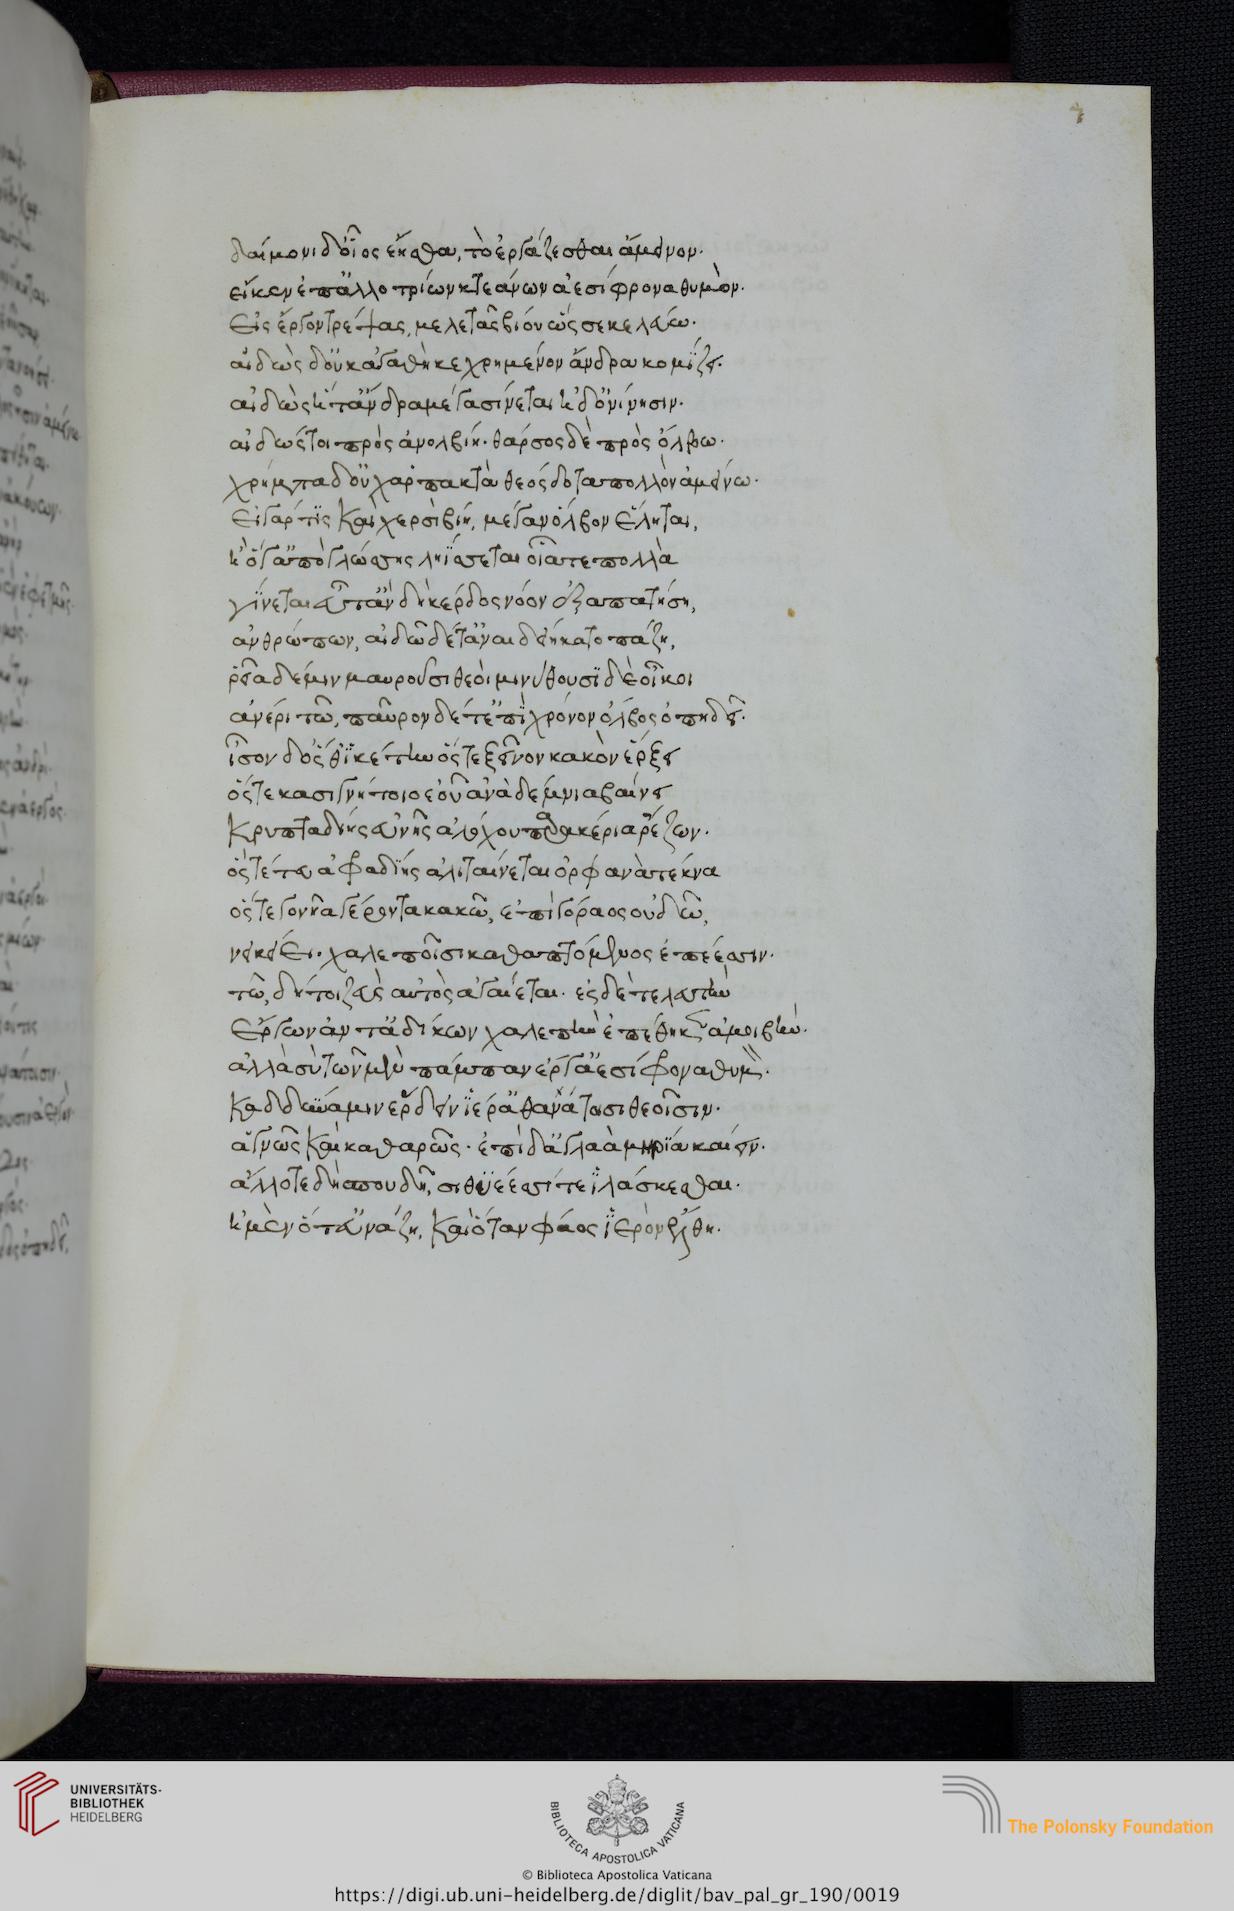 7
δαίμονι δ' οἷος ἔησθα, τὸ ἐργάζεσθαι ἄμεινον.
εἴ κεν ἐπ' ἀλλοτρίων κτεάνων ἀεσίφρονα θυμὸν.
Εἰς ἔργον τρέψας, μελετᾷς βίου ὥς σε κελεύω.
αἰδὼς δ' οὐκ ἀγαθὴ κεχρημένον ἄνδρα κομίζει.
αἰδὼς ἥτ' ἄνδρα μέγα σίνεται ἠδ' ὀνίνησιν.
αἰδώς τοι πρὸς ἀνολβίῃ. θάρσος δὲ πρὸς ὄλβῳ.
χρήματα δ' οὐχ ἁρπακτὰ θεόσδοτα πολλὸν ἀμείνω.
Εἰ γάρ τις καὶ χερσὶ βίῃ, μέγαν ὄλβον ἕληται,
ἢ ὅγ' ἀπὸ γλώσσης ληΐσσεται οἷά τε πολλὰ
γίνεται εὖτ' ἂν δὴ κέρδος νόον ἐξαπατήσῃ,
ἀνθρώπων, αἰδῶ δέ τ' ἀναιδείη κατοπάζῃ,
ῥεῖα δέ μιν μαυροῦσι θεοὶ μινύθουσι δὲ οἶκοι
ἀνέρι τῷ, παῦρον δέ τ' ἐπὶ χρόνον ὄλβος ὀπηδεῖ.
ἶσον δ' ὅς θ' ἱκέτην ὅς τε ξεῖνον κακὸν ἔρξει
ὅς τε κασιγνήτοιο ἑοῦ ἀνὰ δέμνια βαίνει
κρυπταδίης εὐνῆς ἀλόχου παρακαίρια ῥέζων.
ὅς τέ τευ ἀφραδίῃς ἀλιταίνεται ὀρφανὰ τέκνα
ὅς τε γονῆα γέροντα κακῷ, ἐπὶ γήραος οὐδῷ,
νεικείει. χαλεποῖσι καθαπτόμενος ἐπέεσσιν.
τῷ, δή τοι Ζεὺς αὐτὸς ἀγαίεται. ἐς δὲ τελευτὴν
Ἔργων ἀντ' ἀδίκων χαλεπὴν ἐπέθηκεν ἀμοιβήν.
ἀλλὰ σὺ τῶν μὲν πάμπαν ἔεργ' ἀεσίφρονα θυμόν.
Καδδύναμιν ἔρδειν ἱερὰ θανάτοισι θεοῖσιν.
ἁγνῶς καὶ καθαρῶς. ἐπὶ δ' ἀγλαὰ μηρία καίειν.
ἄλλοτε δὴ σπονδῇς, σι θυέεσσί τε ἱλάσκεσθαι.
ἠμὲν ὅτ' εὐνάζῃ, καὶ ὅταν φάος ἱερὸν ἔλθῃ.
UNIVERSITÄTS-
BIBLIOTHEK
HEIDELBERG
BIBLIOTECA APOSTOLICA VATICANA
The Polonsky Foundation
© Biblioteca Apostolica Vaticana
https://digi.ub.uni-heidelberg.de/diglit/bav_pal_gr_190/0019